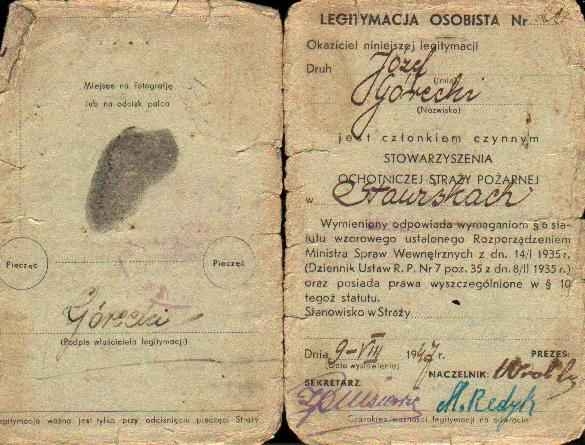 Miejsce na fotografję
lub na odcisk palca
Pieczęć
Pieczęć
Górecki
(Podpis właściciela legitymacji)
Legitymacja ważna jest tylko przy odciśnięciu pieczęci Straży
LEGITYMACJA OSOBISTA Nr
Okaziciel niniejszej legitymacji
Druh Józef
(Imię)
Górecki
(Nazwisko)
jest członkiem czynnym
STOWARZYSZENIA
OCHOTNICZEJ STRAŻY POŻARNEJ
w
Wymieniony odpowiada wymaganiom § 6 sta-
tutu wzorowego ustalonego Rozporządzeniem
Ministra Spraw Wewnętrznych z dn. 14/I 1935 r.
(Dziennik Ustaw R. P. Nr 7 poz. 35 z dn. 8/II 1935 r.)
oraz posiada prawa wyszczególnione w § 10
tegoż statutu.
Stanowisko w Straży
Dnia 9-VIII 1947 r. PREZES:
(data wystawienia)
NACZELNIK:
SEKRETARZ
M. Redyk
(Czasokres ważności legitymacji na odwrocie)